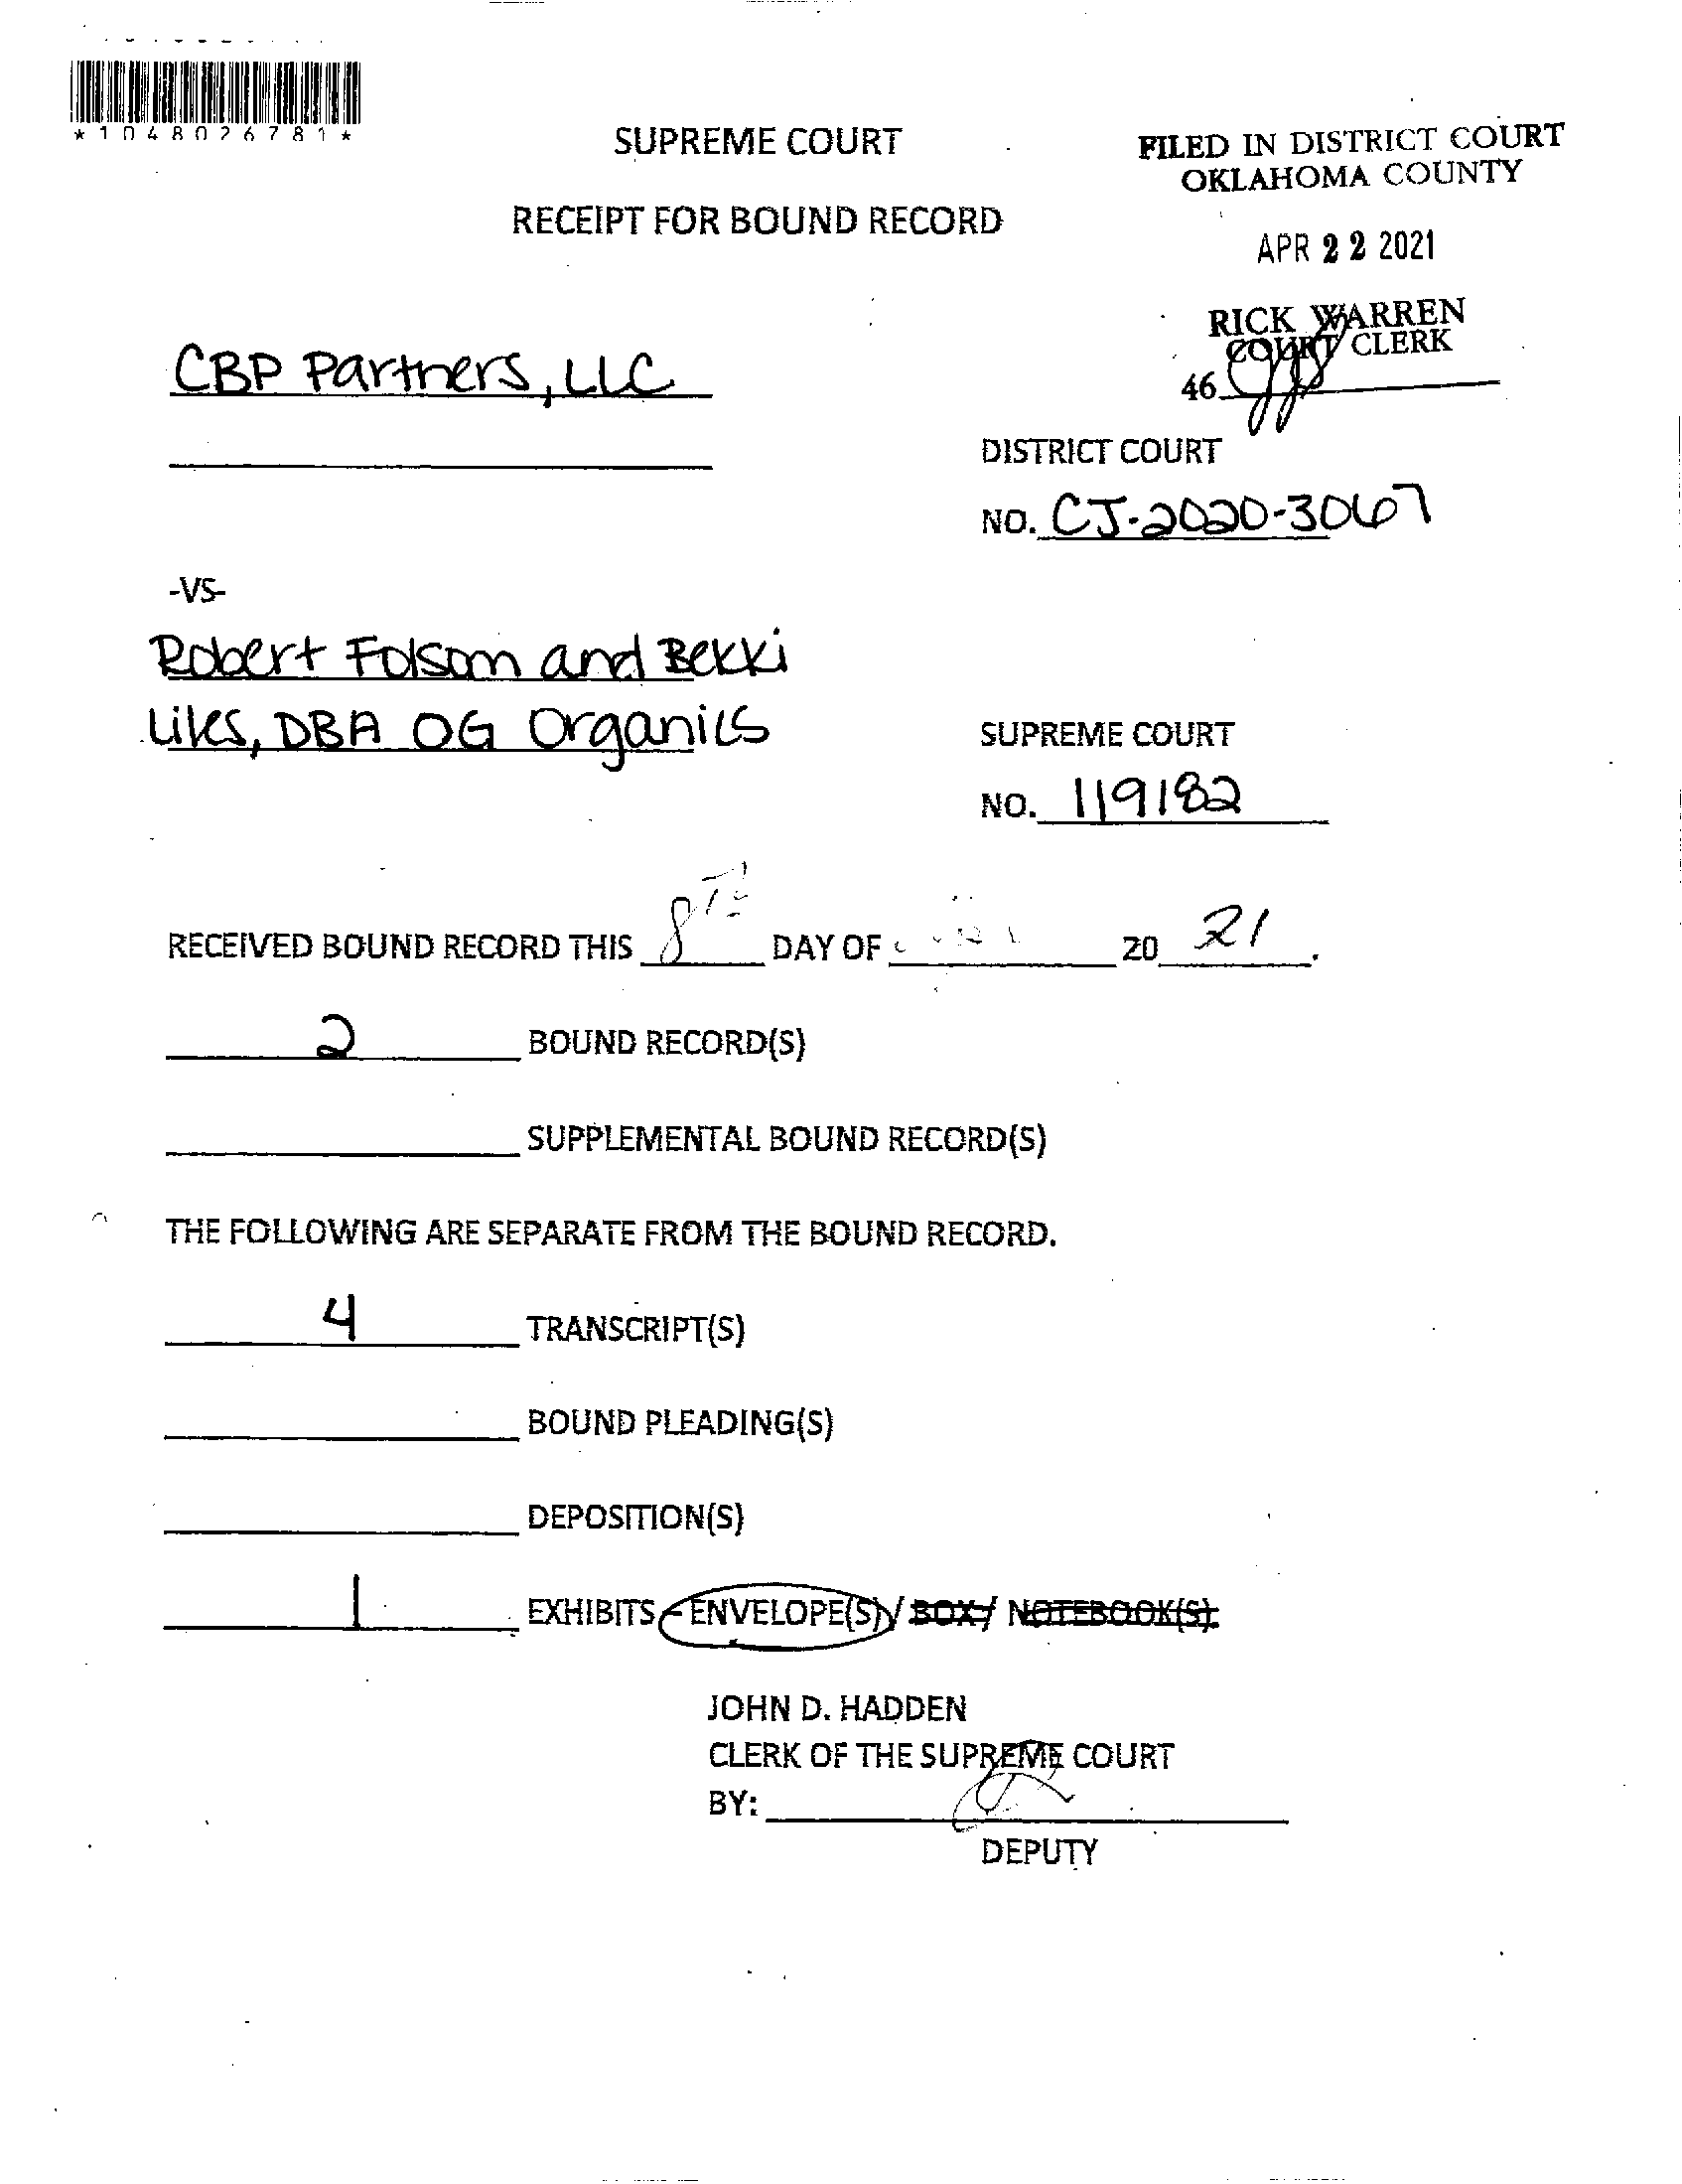 *1048026781*
SUPREME COURT
RECEIPT FOR BOUND RECORD
FILED IN DISTRICT COURT
OKLAHOMA COUNTY
APR 22 2021
RICK WARREN
COURT CLERK
46
CBP Partners, LLC
DISTRICT COURT
NO. CJ-2020-3067
-VS-
Robert Folsom and Bekki
Likes, DBA OG Organics
SUPREME COURT
NO. 119182
RECEIVED BOUND RECORD THIS 8th DAY OF 20 21.
2 BOUND RECORD(S)
SUPPLEMENTAL BOUND RECORD(S)
THE FOLLOWING ARE SEPARATE FROM THE BOUND RECORD.
4 TRANSCRIPT(S)
BOUND PLEADING(S)
DEPOSITION(S)
1 EXHIBITS - ENVELOPE(S) / BOX / NOTEBOOK(S).
JOHN D. HADDEN
CLERK OF THE SUPREME COURT
BY:
DEPUTY